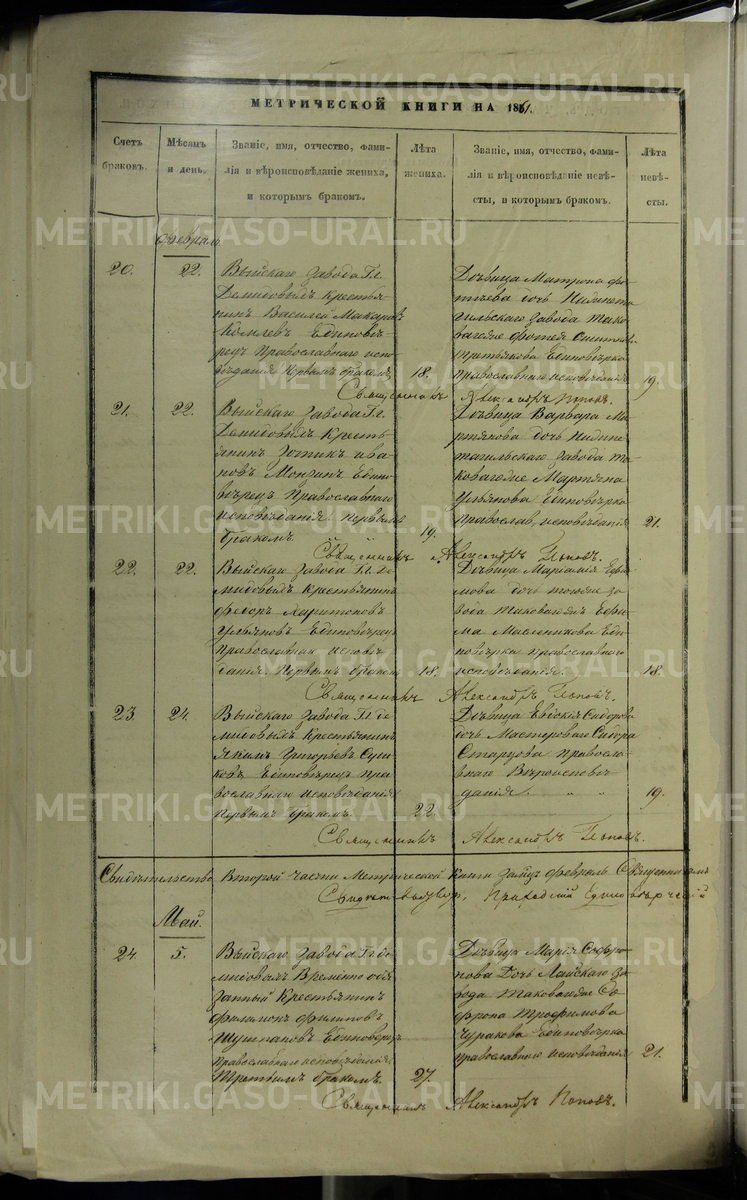 МЕТРИЧЕСКОЙ КНИГИ НА 1861.
Счетъ браковъ.
Мѣсяцъ и день.
Званіе, имя, отчество, фами-
лія и вѣроисповѣданіе жениха,
и которымъ бракомъ.
Лѣта жениха.
Званіе, имя, отчество, фами-
лія и вѣроисповѣданіе невѣ-
сты, и которымъ бракомъ.
Лѣта невѣ-
сты.
Февраль
20.
22.
Выйскаго завода Гг.
Демидовыхъ Крестья-
нинъ Василей Макаровъ
Комлевъ Единовѣ-
рецъ Православнаго испо-
вѣданія первымъ бракомъ.
18.
Дѣвица Матрона Фо-
тѣева дочь Нижнета-
гильскаго завода тако-
вагоже Фотея
Третьякова Единовѣрка
Православнаго исповѣданія
19.
Священникъ Александръ Поповъ.
21.
22.
Выйскаго завода Гг.
Демидовыхъ Кресть-
янинъ Зотикъ Ива-
новъ Монзинъ Едино-
вѣрецъ Православнаго
исповѣданія. первымъ
бракомъ.
19.
Дѣвица Варвара Ма-
ртьянова дочь Нижне-
тагильскаго завода та-
ковагоже Мартьяна
Ульянова Единовѣрка
православ. исповѣданія
21.
Священникъ Александръ Поповъ.
22.
22.
Выйскаго завода Гг. Де-
мидовыхъ крестьянинъ
Федоръ Харитоновъ
Ульяновъ Единовѣрецъ
Православнаго исповѣ-
данія. Первымъ бракомъ
18.
Дѣвица Маріамія Ефи-
мова дочь тогоже за-
вода таковагожъ Ефи-
ма Масленикова Еди-
новѣрка православнаго
исповѣданія.
18.
Священникъ Александръ Поповъ.
23.
24.
Выйскаго завода Гг. Де-
мидовыхъ Крестьянинъ
Якимъ Григорьевъ
Единовѣрецъ Пра-
вославнаго исповѣданія
Первымъ бракомъ.
22.
Дѣвица Евдокія Сидорова
дочь Мастероваго Сидора
Старцова Правосла-
внаго Вѣроисповѣ-
данія. " "
19.
Священникъ Александръ Поповъ.
Свидѣтельство Второй части Метрической Книги за Мцъ Февраль Священникъ
Приходскій Единовѣрческій
Май.
24.
5.
Выйскаго завода Гг. Де-
мидовыхъ Временно обя-
занный Крестьянинъ
Филимонъ Филиповъ
Шушпановъ Единовѣрцъ
Православнаго исповѣданія
Третьимъ бракомъ.
27.
Дѣвица Марія Софро-
нова Дочь Лайскаго за-
вода таковагоже Со-
фрона Трофимова
Чуракова Единовѣрка
православнаго исповѣданія
21.
Священникъ Александръ Поповъ.
METRIKI.GASO-URAL.RU